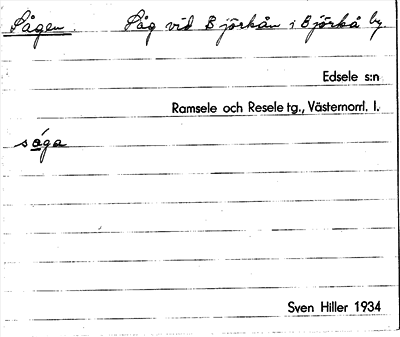 Sågen. Såg vid Björkån i Björkå by.
Edsele s:n
Ramsele och Resele tg., Västernorrl. l.
såga
Sven Hiller 1934